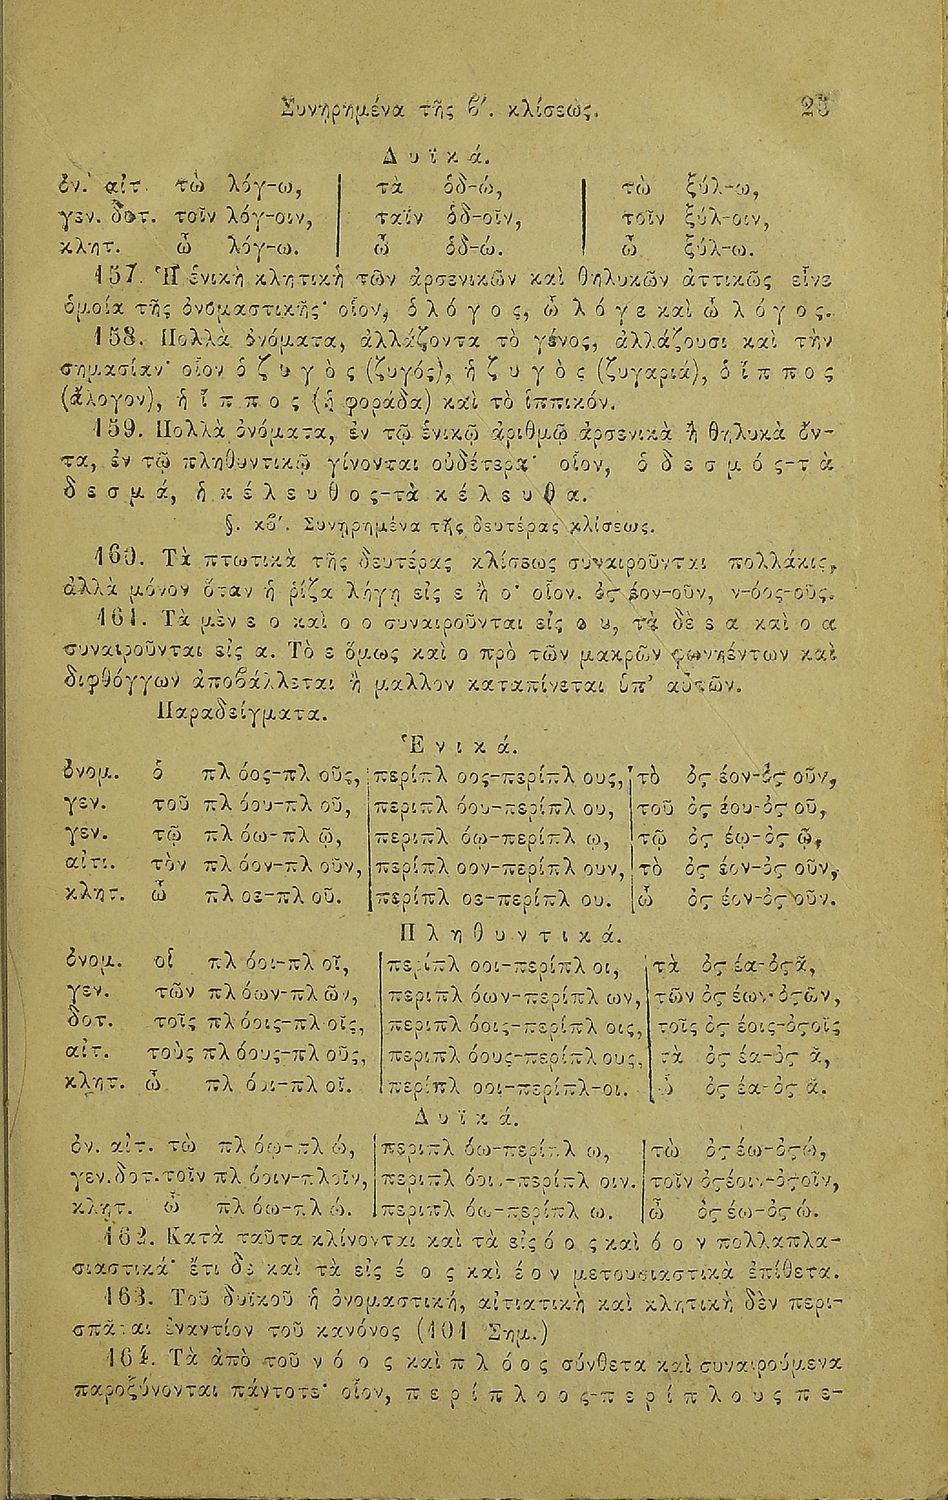 Συνῃρημένα τῆς β′. κλίσεως. 25
Δυϊκά.
ὀν. αἰτ. τὼ λόγ-ω, | τὰ ὁδ-ώ, | τὼ ξύλ-ω,
γεν. δοτ. τοῖν λόγ-οιν, | ταῖν ὁδ-οῖν, | τοῖν ξύλ-οιν,
κλητ. ὦ λόγ-ω. | ὦ ὁδ-ώ. | ὦ ξύλ-ω.
157. Ἡ ἑνικὴ κλητικὴ τῶν ἀρσενικῶν καὶ θηλυκῶν ἀττικῶς εἶνε
ὁμοία τῆς ὀνομαστικῆς· οἷον, ὁ λόγος, ὦ λόγε καὶ ὦ λόγος.
158. Πολλὰ ὀνόματα, ἀλλάζοντα τὸ γένος, ἀλλάζουσι καὶ τὴν
σημασίαν· οἷον ὁ ζυγὸς (ζυγός), ἡ ζυγὸς (ζυγαριά), ὁ ἵππος
(ἄλογον), ἡ ἵππος (ἡ φοράδα) καὶ τὸ ἱππικόν.
159. Πολλὰ ὀνόματα, ἐν τῷ ἑνικῷ ἀριθμῷ ἀρσενικὰ ἢ θηλυκὰ ὄν-
τα, ἐν τῷ πληθυντικῷ γίνονται οὐδέτερα· οἷον, ὁ δεσμός-τὰ
δεσμά, ἡ κέλευθος-τὰ κέλευθα.
§. κβ′. Συνῃρημένα τῆς δευτέρας κλίσεως.
160. Τὰ πτωτικὰ τῆς δευτέρας κλίσεως συναιροῦνται πολλάκις,
ἀλλὰ μόνον ὅταν ἡ ῥίζα λήγῃ εἰς ε ἢ ο· οἷον. ὀστέον-οῦν, ν-όος-οῦς.
161. Τὰ μὲν εο καὶ οο συναιροῦνται εἰς ου, τὰ δὲ εα καὶ οα
συναιροῦνται εἰς α. Τὸ ε ὅμως καὶ ο πρὸ τῶν μακρῶν φωνηέντων καὶ
διφθόγγων ἀποβάλλεται ἢ μαλλον καταπίνεται ὑπ' αὐτῶν.
Παραδείγματα.
Ἑνικά.
ὀνομ. ὁ πλ όος-πλ οῦς, | περίπλ οος-περίπλ ους, | τὸ ὀστ έον-ὀστ οῦν,
γεν. τοῦ πλ όου-πλ οῦ, | περιπλ όου-περίπλ ου, | τοῦ ὀστ έου-ὀστ οῦ,
γεν. τῷ πλ όῳ-πλ ῷ, | περιπλ όῳ-περίπλ ῳ, | τῷ ὀστ έῳ-ὀστ ῷ,
αἰτι. τὸν πλ όον-πλ οῦν, | περίπλ οον-περίπλ ουν, | τὸ ὀστ έον-ὀστ οῦν,
κλητ. ὦ πλ οε-πλ οῦ. | περίπλ οε-περίπλ ου. | ὦ ὀστ έον-ὀστ οῦν.
Πληθυντικά.
ὀνομ. οἱ πλ όοι-πλ οῖ, | περίπλ οοι-περίπλ οι, | τὰ ὀστ έα-ὀστᾶ,
γεν. τῶν πλ όων-πλ ῶν, | περιπλ όων-περίπλ ων, | τῶν ὀστ έων-ὀστῶν,
δοτ. τοῖς πλ όοις-πλ οῖς, | περιπλ όοις-περίπλ οις, | τοῖς ὀστ έοις-ὀστοῖς
αἰτ. τοὺς πλ όους-πλ οῦς, | περιπλ όους-περίπλ ους, | τὰ ὀστ έα-ὀστ ᾶ,
κλητ. ὦ πλ όοι-πλ οῖ. | περίπλ οοι-περίπλ-οι. | ὦ ὀστ έα-ὀστ ᾶ.
Δυϊκά.
ὀν. αἰτ. τὼ πλ όω-πλ ώ, | περιπλ όω-περίπλ ω, | τὼ ὀστ έω-ὀστώ,
γεν. δοτ. τοῖν πλ όοιν-πλοῖν, | περιπλ όοιν-περίπλ οιν. | τοῖν ὀστέοιν-ὀστοῖν,
κλητ. ὦ πλ όω-πλ ώ. | περιπλ όω-περίπλ ω. | ὦ ὀστ έω-ὀστ ώ.
162. Κατὰ ταῦτα κλίνονται καὶ τὰ εἰς όος καὶ όον πολλαπλα-
σιαστικά· ἔτι δὲ καὶ τὰ εἰς έος καὶ έον μετουσιαστικὰ ἐπίθετα.
163. Τοῦ δυϊκοῦ ἡ ὀνομαστική, αἰτιατικὴ καὶ κλητικὴ δὲν περι-
σπᾶται ἐναντίον τοῦ κανόνος (101 Σημ.)
164. Τὰ ἀπὸ τοῦ νόος καὶ πλόος σύνθετα καὶ συναιρούμενα
παροξύνονται πάντοτε· οἷον, περίπλοος-περίπλους πε-